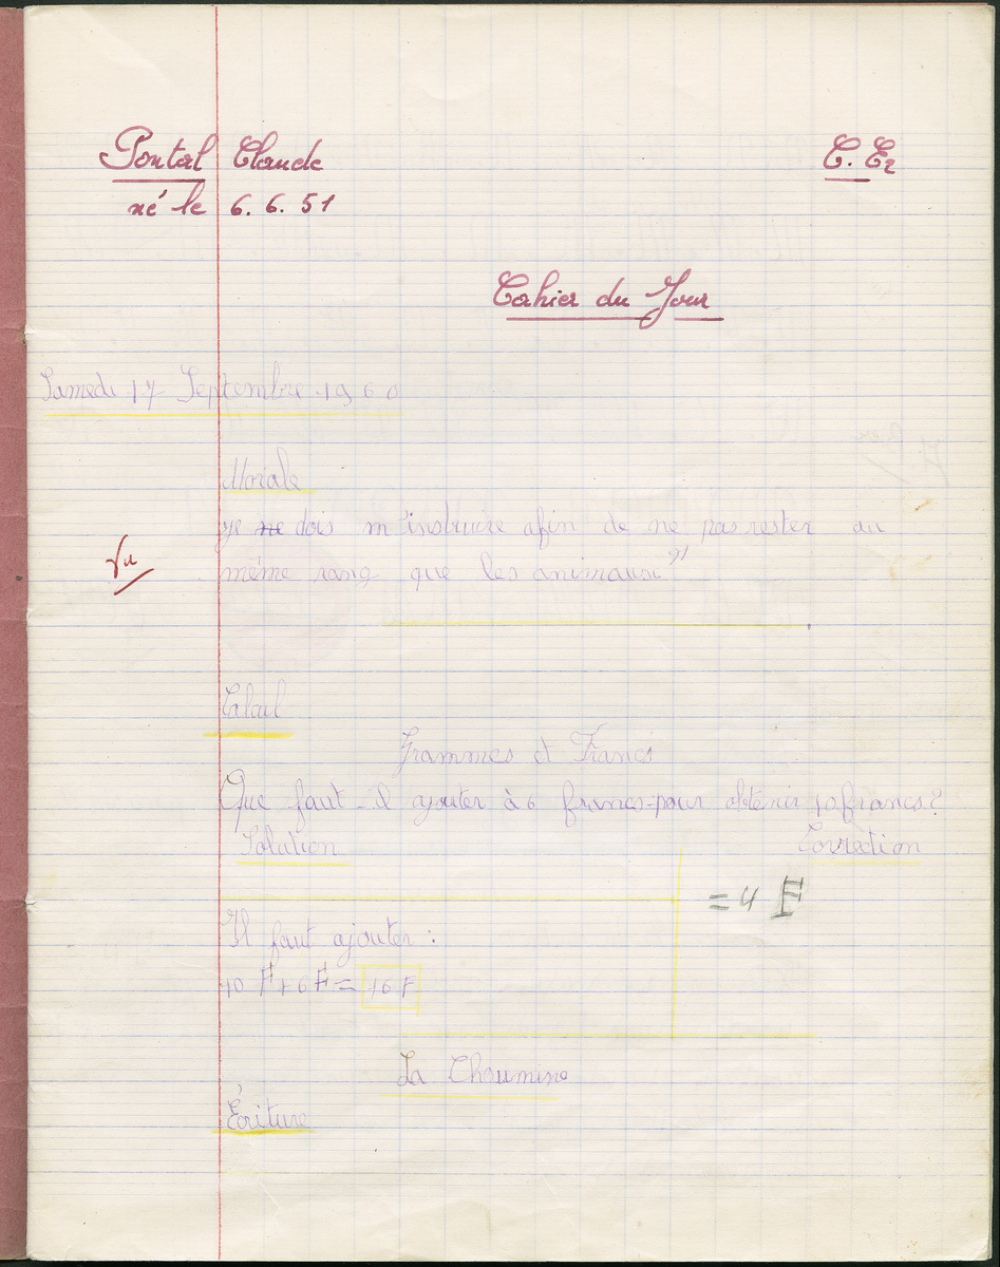 Pontal Claude C. E2
né le 6. 6. 51
Cahier du Jour
Samedi 17 Septembre 1960
Morale
je ne dois m'instruire afin de ne pas rester au
même rang que les animaux"
Vu
Calcul
Grammes et Francs
Que faut-il ajouter à 6 francs pour obtenir 10 francs?
Solution Correction
= 4 F
Il faut ajouter :
10 F + 6 F = 16 F
La Chaumine
Écriture